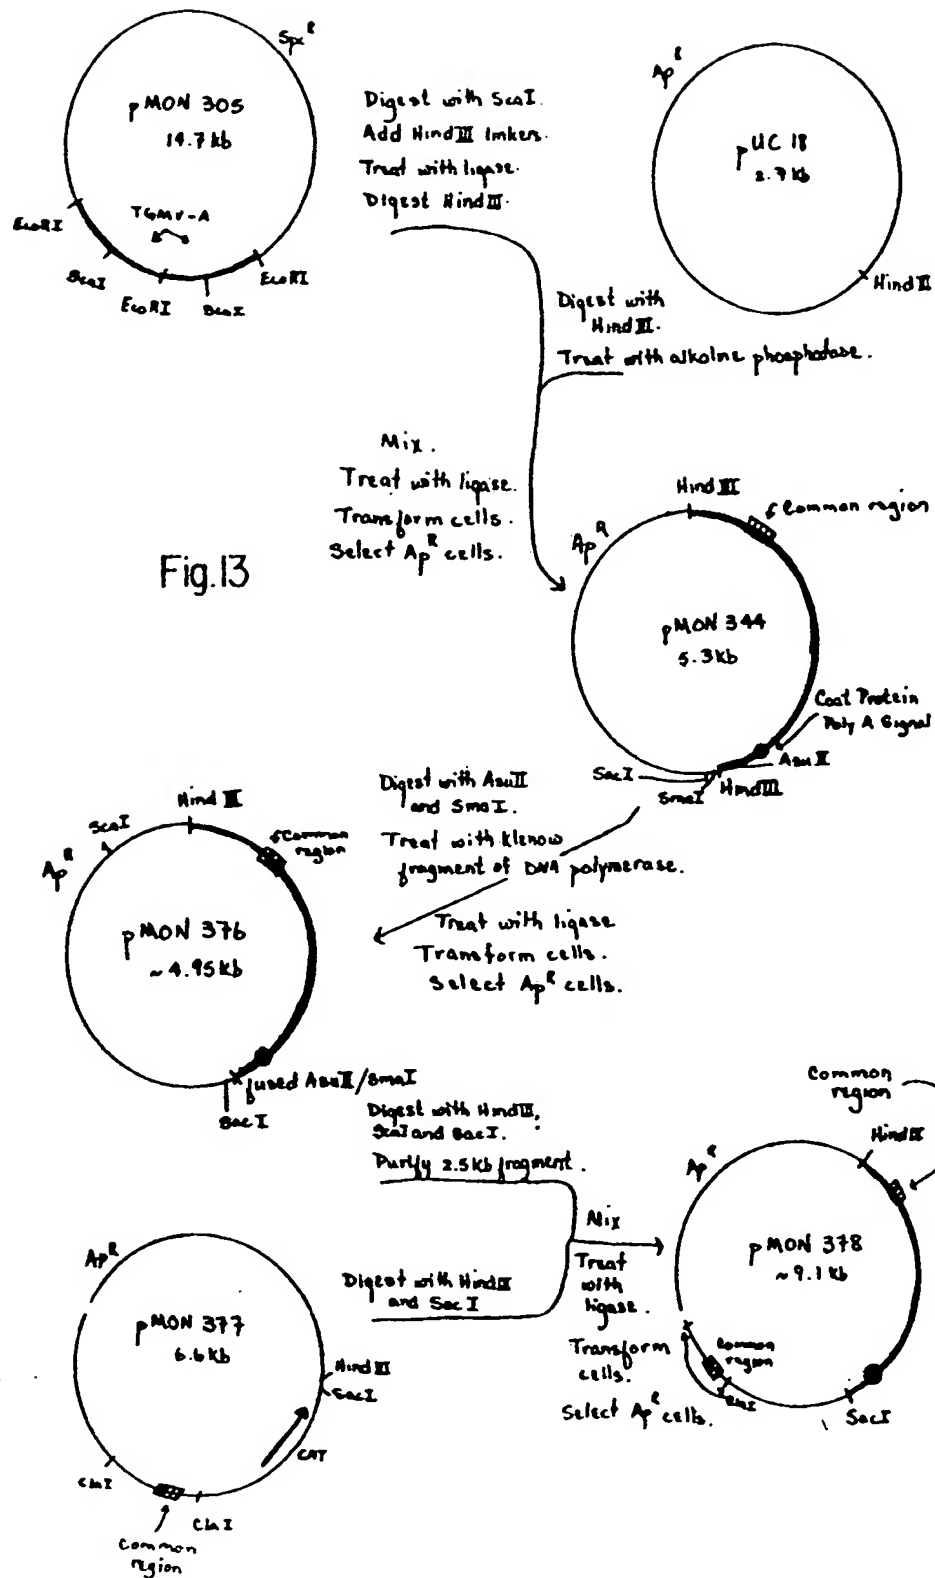 Spx R
pMON 305
14.7 kb
TGMV-A
EcoRI
ScaI
EcoRI
ScaI
EcoRI
Digest with ScaI.
Add Hind III linkers.
Treat with ligase.
Digest Hind III.
Ap R
pUC 18
2.7kb
Hind III
Digest with
Hind III.
Treat with alkaline phosphatase.
Mix.
Treat with ligase.
Transform cells.
Select Ap R cells.
Fig.13
Hind III
Common region
Ap R
pMON 344
5.3kb
Coat Protein
Poly A Signal
Asu II
Hind III
SmaI
SacI
Digest with Asu II
and Sma I.
Treat with Klenow
fragment of DNA polymerase.
Treat with ligase
Transform cells.
Select Ap R cells.
Hind III
ScaI
Ap R
Common
region
pMON 376
~4.95kb
fused AsuII/SmaI
SacI
Digest with Hind III,
ScaI and SacI.
Purify 2.5Kb fragment.
Ap R
pMON 377
6.6kb
Hind III
SacI
CAT
ClaI
ClaI
Common
region
Digest with Hind III
and Sac I
Mix
Treat
with
ligase.
Transform
cells.
Select Ap R cells.
Common
region
Hind III
Ap R
pMON 378
~9.1kb
Common
region
ClaI
SacI